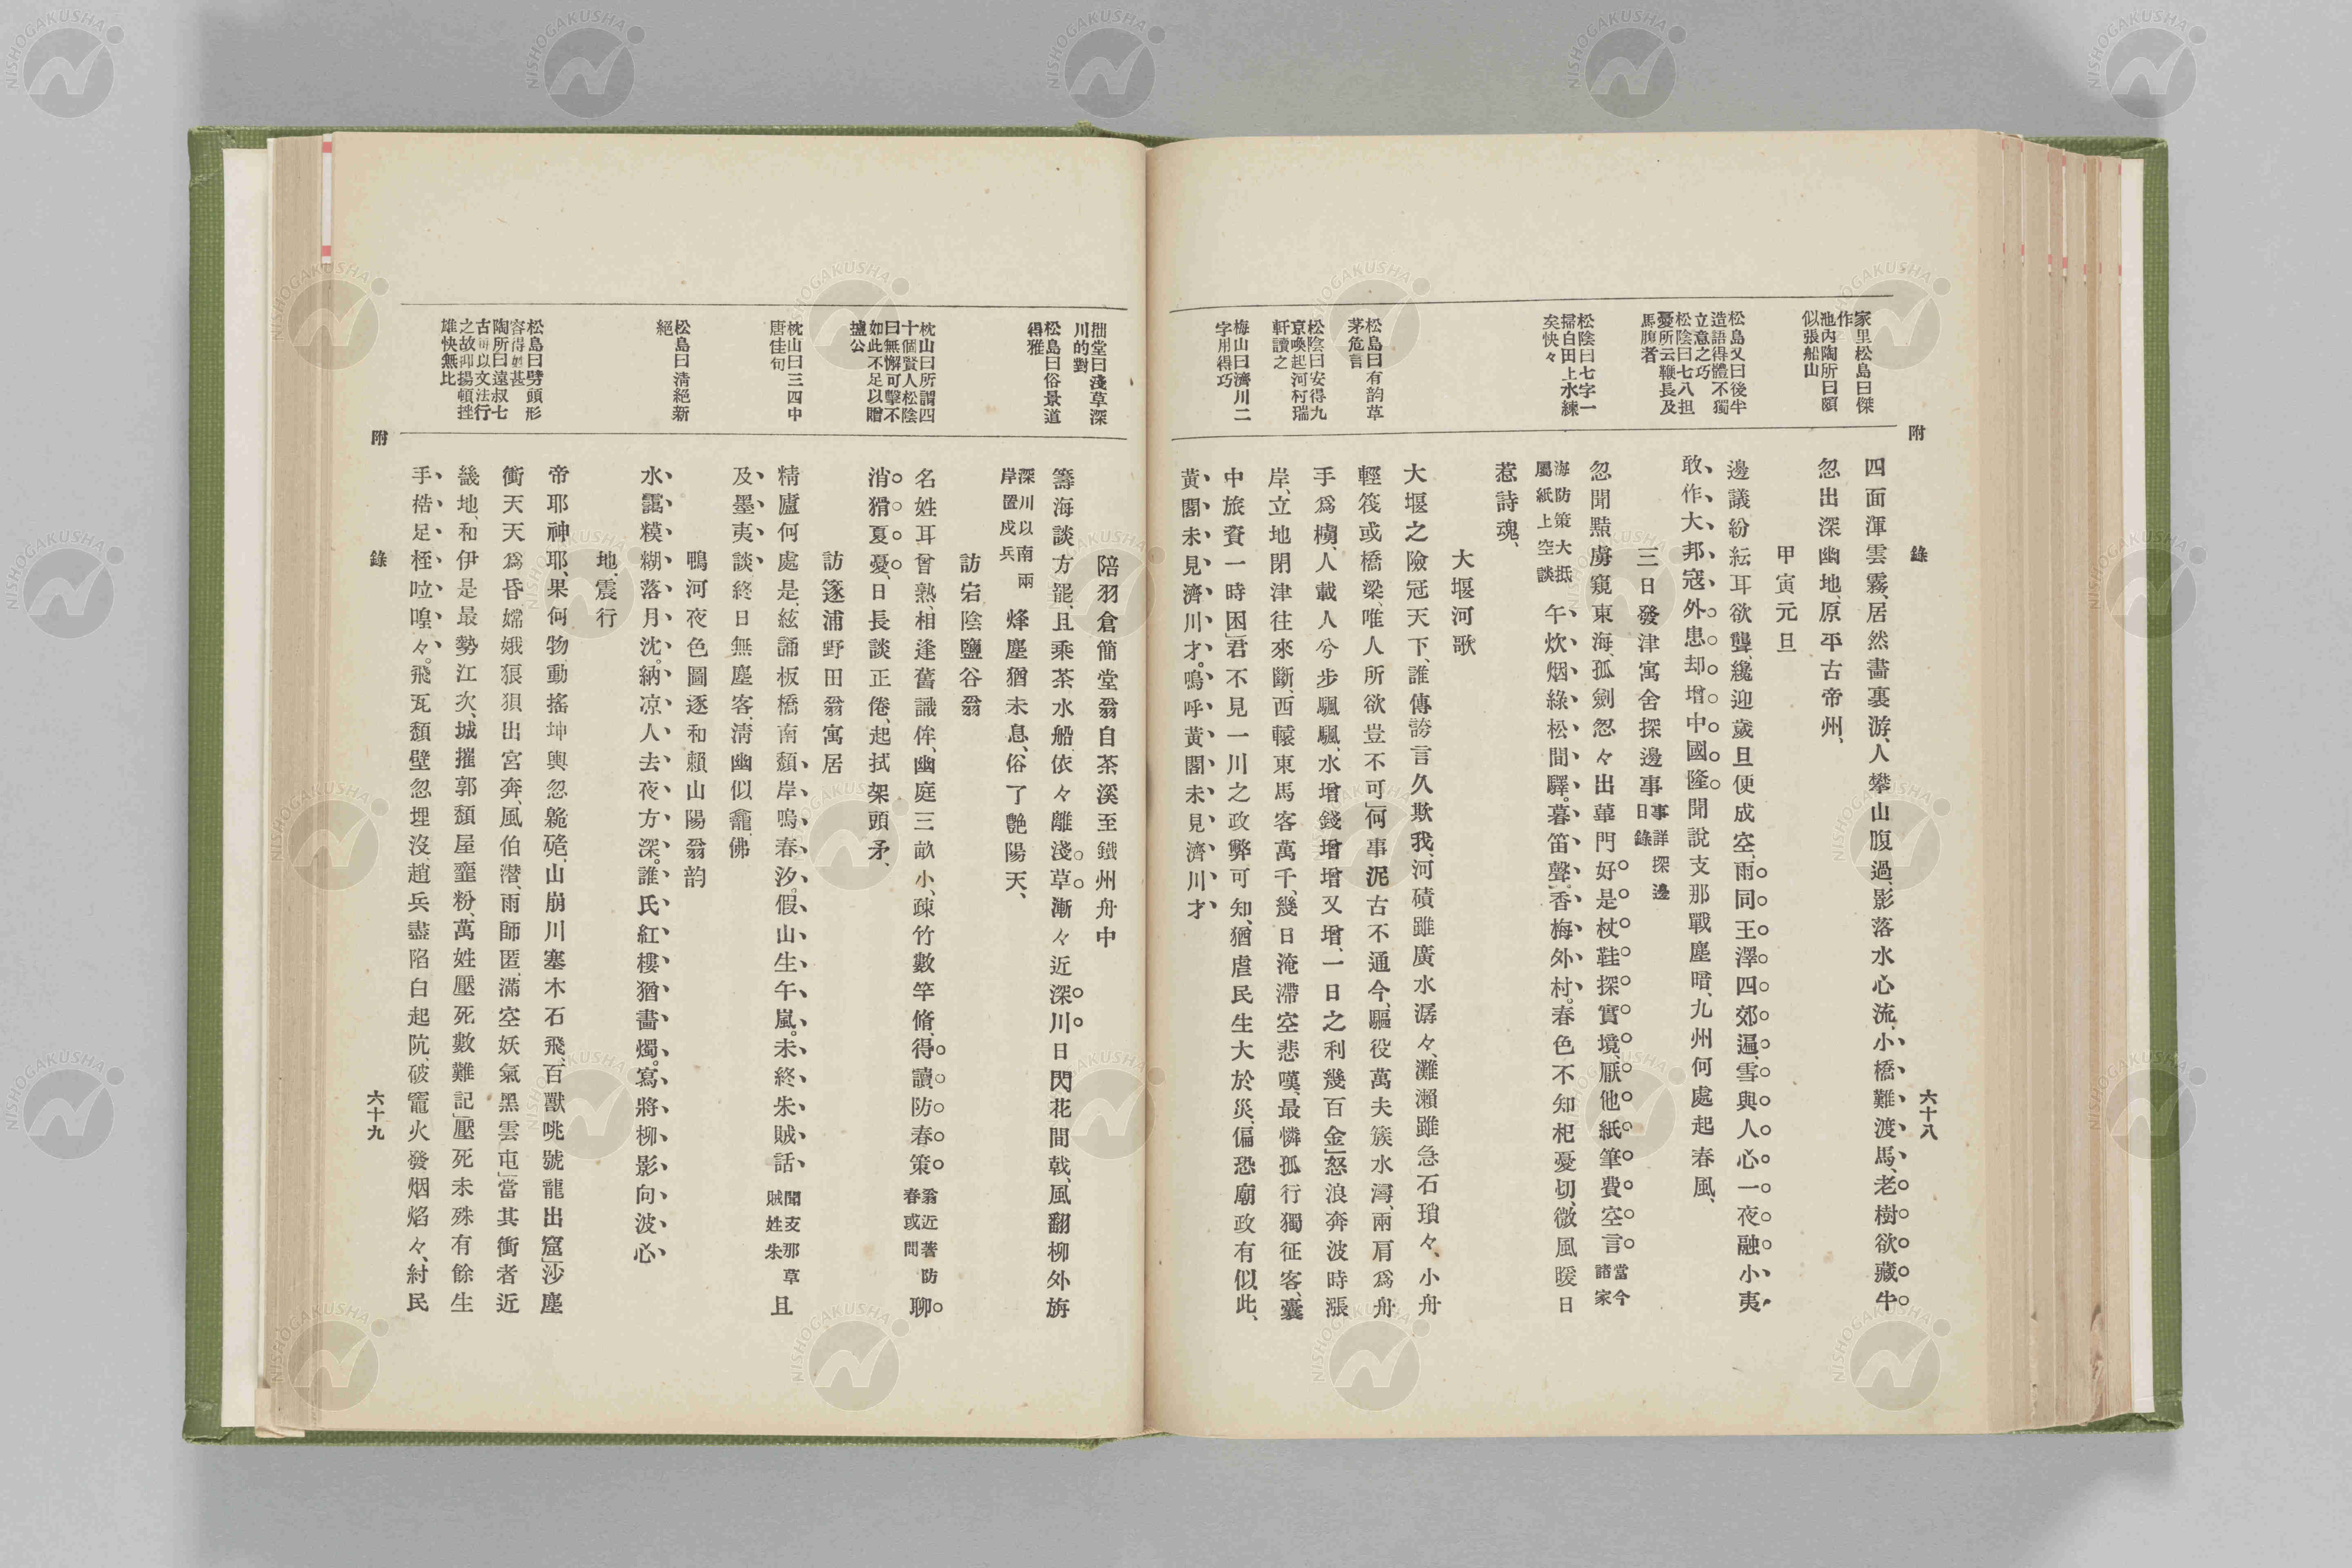 附
錄
六十八
家里松島曰傑
作
池內陶所曰頗
似張船山
松島又曰後半
造語得體不獨
立意之巧
松陰曰七八担
憂所云鞭長及
馬腹者
松陰曰七字一
掃白田上水練
矣快々
松島曰有韵草
茅危言
松陰曰安得九
京喚起河村瑞
軒讀之
梅山曰濟川二
字用得巧
四面渾雲霧、居然畵裏游、人攀山腹過、影落水心流、小橋難渡馬、老樹欲藏牛
忽出深幽地、原平古帝州、
甲寅元旦
邊議紛紜耳欲聾、纔迎歲旦便成空、雨同王澤四郊遍、雪與人心一夜融、小夷
敢作大邦寇、外患却增中國隆、聞說支那戰塵暗、九州何處起春風、
三日發津寓舍探邊事事詳探邊
日錄
忽聞黠虜窺東海、孤劍忽々出蓽門、好是杖鞋探實境、厭他紙筆費空言當今
諸家
海防策大抵
屬紙上空談
午炊烟綠松間驛。暮笛聲香梅外村。春色不知杞憂切、微風暖日
惹詩魂、
大堰河歌
大堰之險冠天下、誰傳誇言久欺我、河磧雖廣水潺々、灘瀨雖急石瑣々、小舟
輕筏或橋梁、唯人所欲豈不可」何事泥古不通今、驅役萬夫簇水潯、兩肩爲舟
手爲櫓、人載人兮步颿颿、水增錢增增又增、一日之利幾百金」怒浪奔波時漲
岸、立地閉津往來斷、西轅東馬客萬千、幾日淹滯空悲嘆、最憐孤行獨征客、囊
中旅資一時困」君不見一川之政弊可知、猶虐民生大於災、偏恐廟政有似此、
黃閣未見濟川才。嗚呼黃閣未見濟川才
拙堂曰淺草深
川的對
松島曰俗景道
得雅
枕山曰所謂四
十個賢人松陰
曰無懈可擊不
如此不足以贈
壚公
枕山曰三四中
唐佳句
松島曰淸絕新
絕
松島曰劈頭形
容得甚
陶所曰遠叔七
古以文法行
之故抑揚頓挫
雄快無比
陪羽倉簡堂翁自茶溪至鐵州舟中
籌海談方罷、且乘茶水船、依々離淺草、漸々近深川、日閃花間戟、風翻柳外旃
深川以南兩
岸置戍兵
烽塵猶未息、俗了艷陽天、
訪宕陰鹽谷翁
名姓耳曾熟、相逢舊識侔、幽庭三畝小、疎竹數竿脩、得讀防春策翁近著防
春或問
聊
消猾夏憂、日長談正倦、起拭架頭矛、
訪篴浦野田翁寓居
精廬何處是、絃誦板橋南、頽岸嗚春汐。假山生午嵐。未終朱賊話聞支那草
賊姓朱
且
及墨夷談、終日無塵客、淸幽似龕佛
鴨河夜色圖逐和賴山陽翁韵
水靄糢糊落月沈。納凉人去夜方深。誰氏紅樓猶畵燭。寫將柳影向波心
地震行
帝耶神耶、果何物、動搖坤輿忽臲硊、山崩川塞木石飛、百獸咷號龍出窟」沙塵
衝天天爲昏、嫦娥狼狽出宮奔、風伯潛、雨師匿、滿空妖氣黑雲屯」當其衝者近
畿地、和伊是最勢江次、城摧郭頽屋虀粉、萬姓壓死數難記」壓死未殊有餘生
手梏足桎啦喤々。飛瓦頽壁忽埋沒、趙兵盡陷白起阬、破竈火發烟焰々、紂民
附
錄
六十九